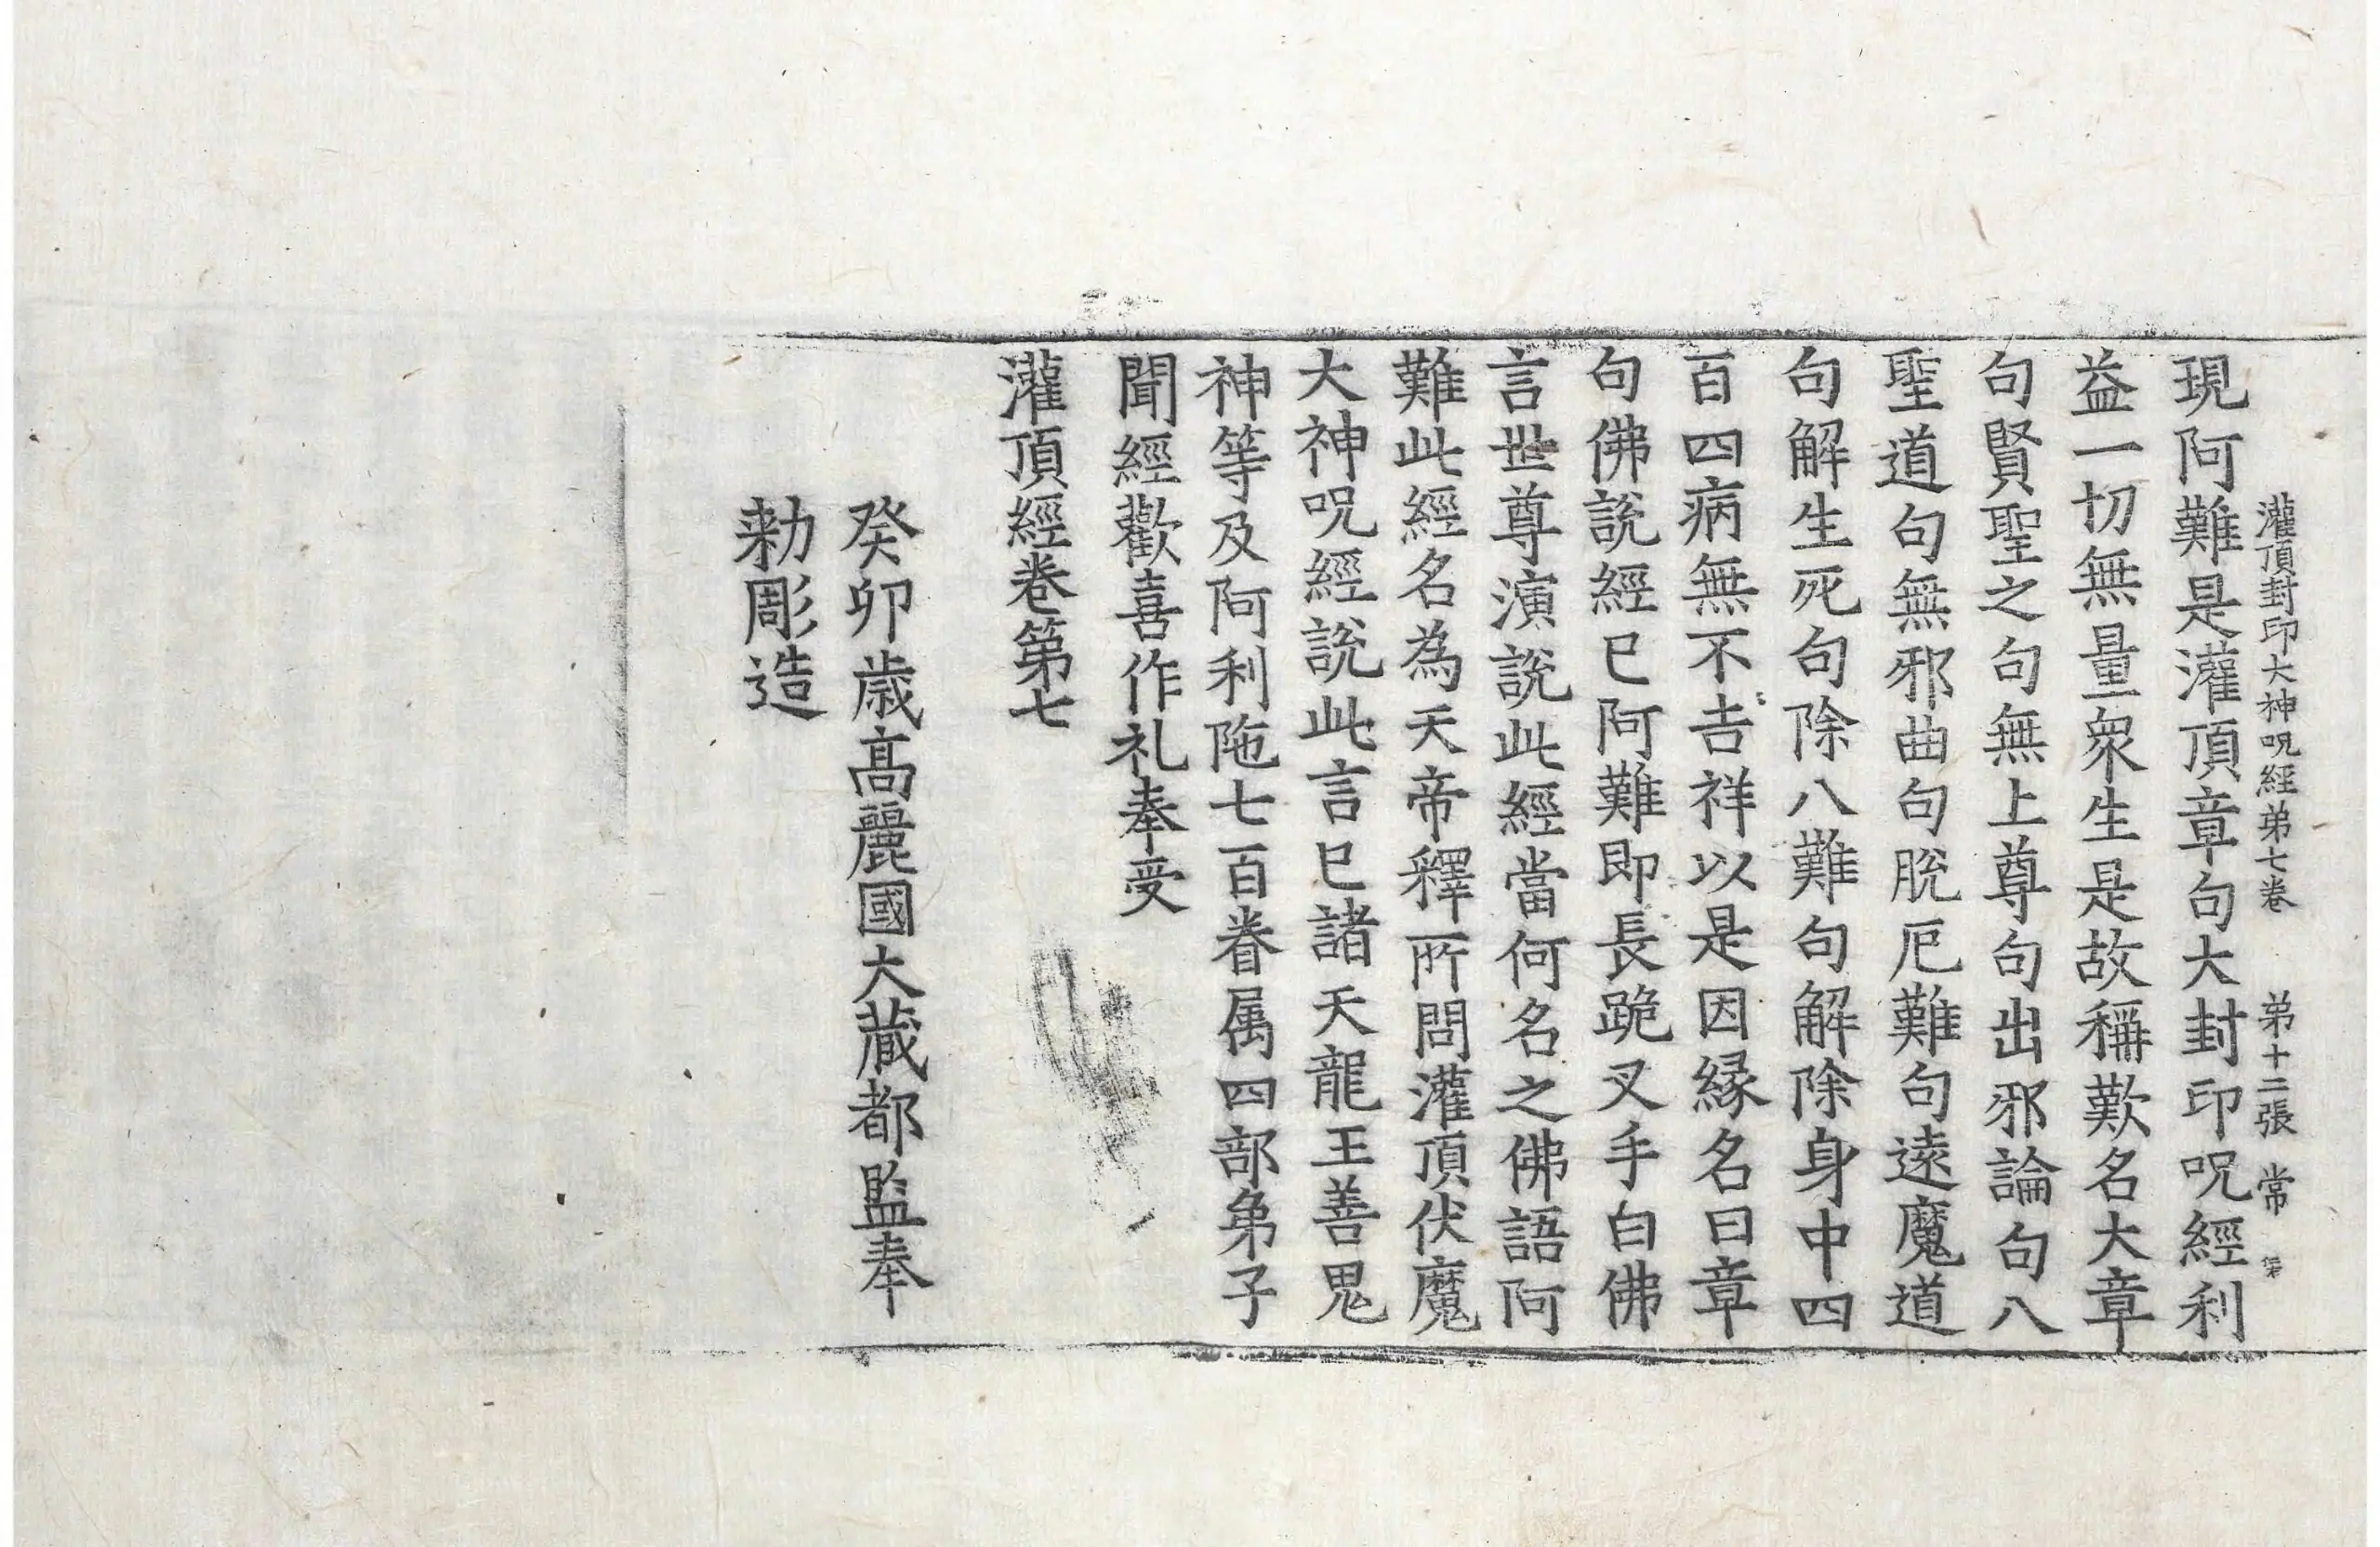 灌頂封印大神呪經苐七卷　苐十二張　常
現阿難是灌頂章句大封印呪經利
益一切無量衆生是故稱歎名大章
句賢聖之句無上尊句出邪論句八
聖道句無邪曲句脫厄難句遠魔道
句解生死句除八難句解除身中四
百四病無不吉祥以是因縁名曰章
句佛說經已阿難即長跪叉手白佛
言世尊演說此經當何名之佛語阿
難此經名為天帝釋所問灌頂伏魔
大神呪經說此言已諸天龍王善鬼
神等及阿利陁七百眷属四部弟子
聞經歡喜作礼奉受
灌頂經卷第七
癸卯歳高麗國大藏都監奉
勑彫造